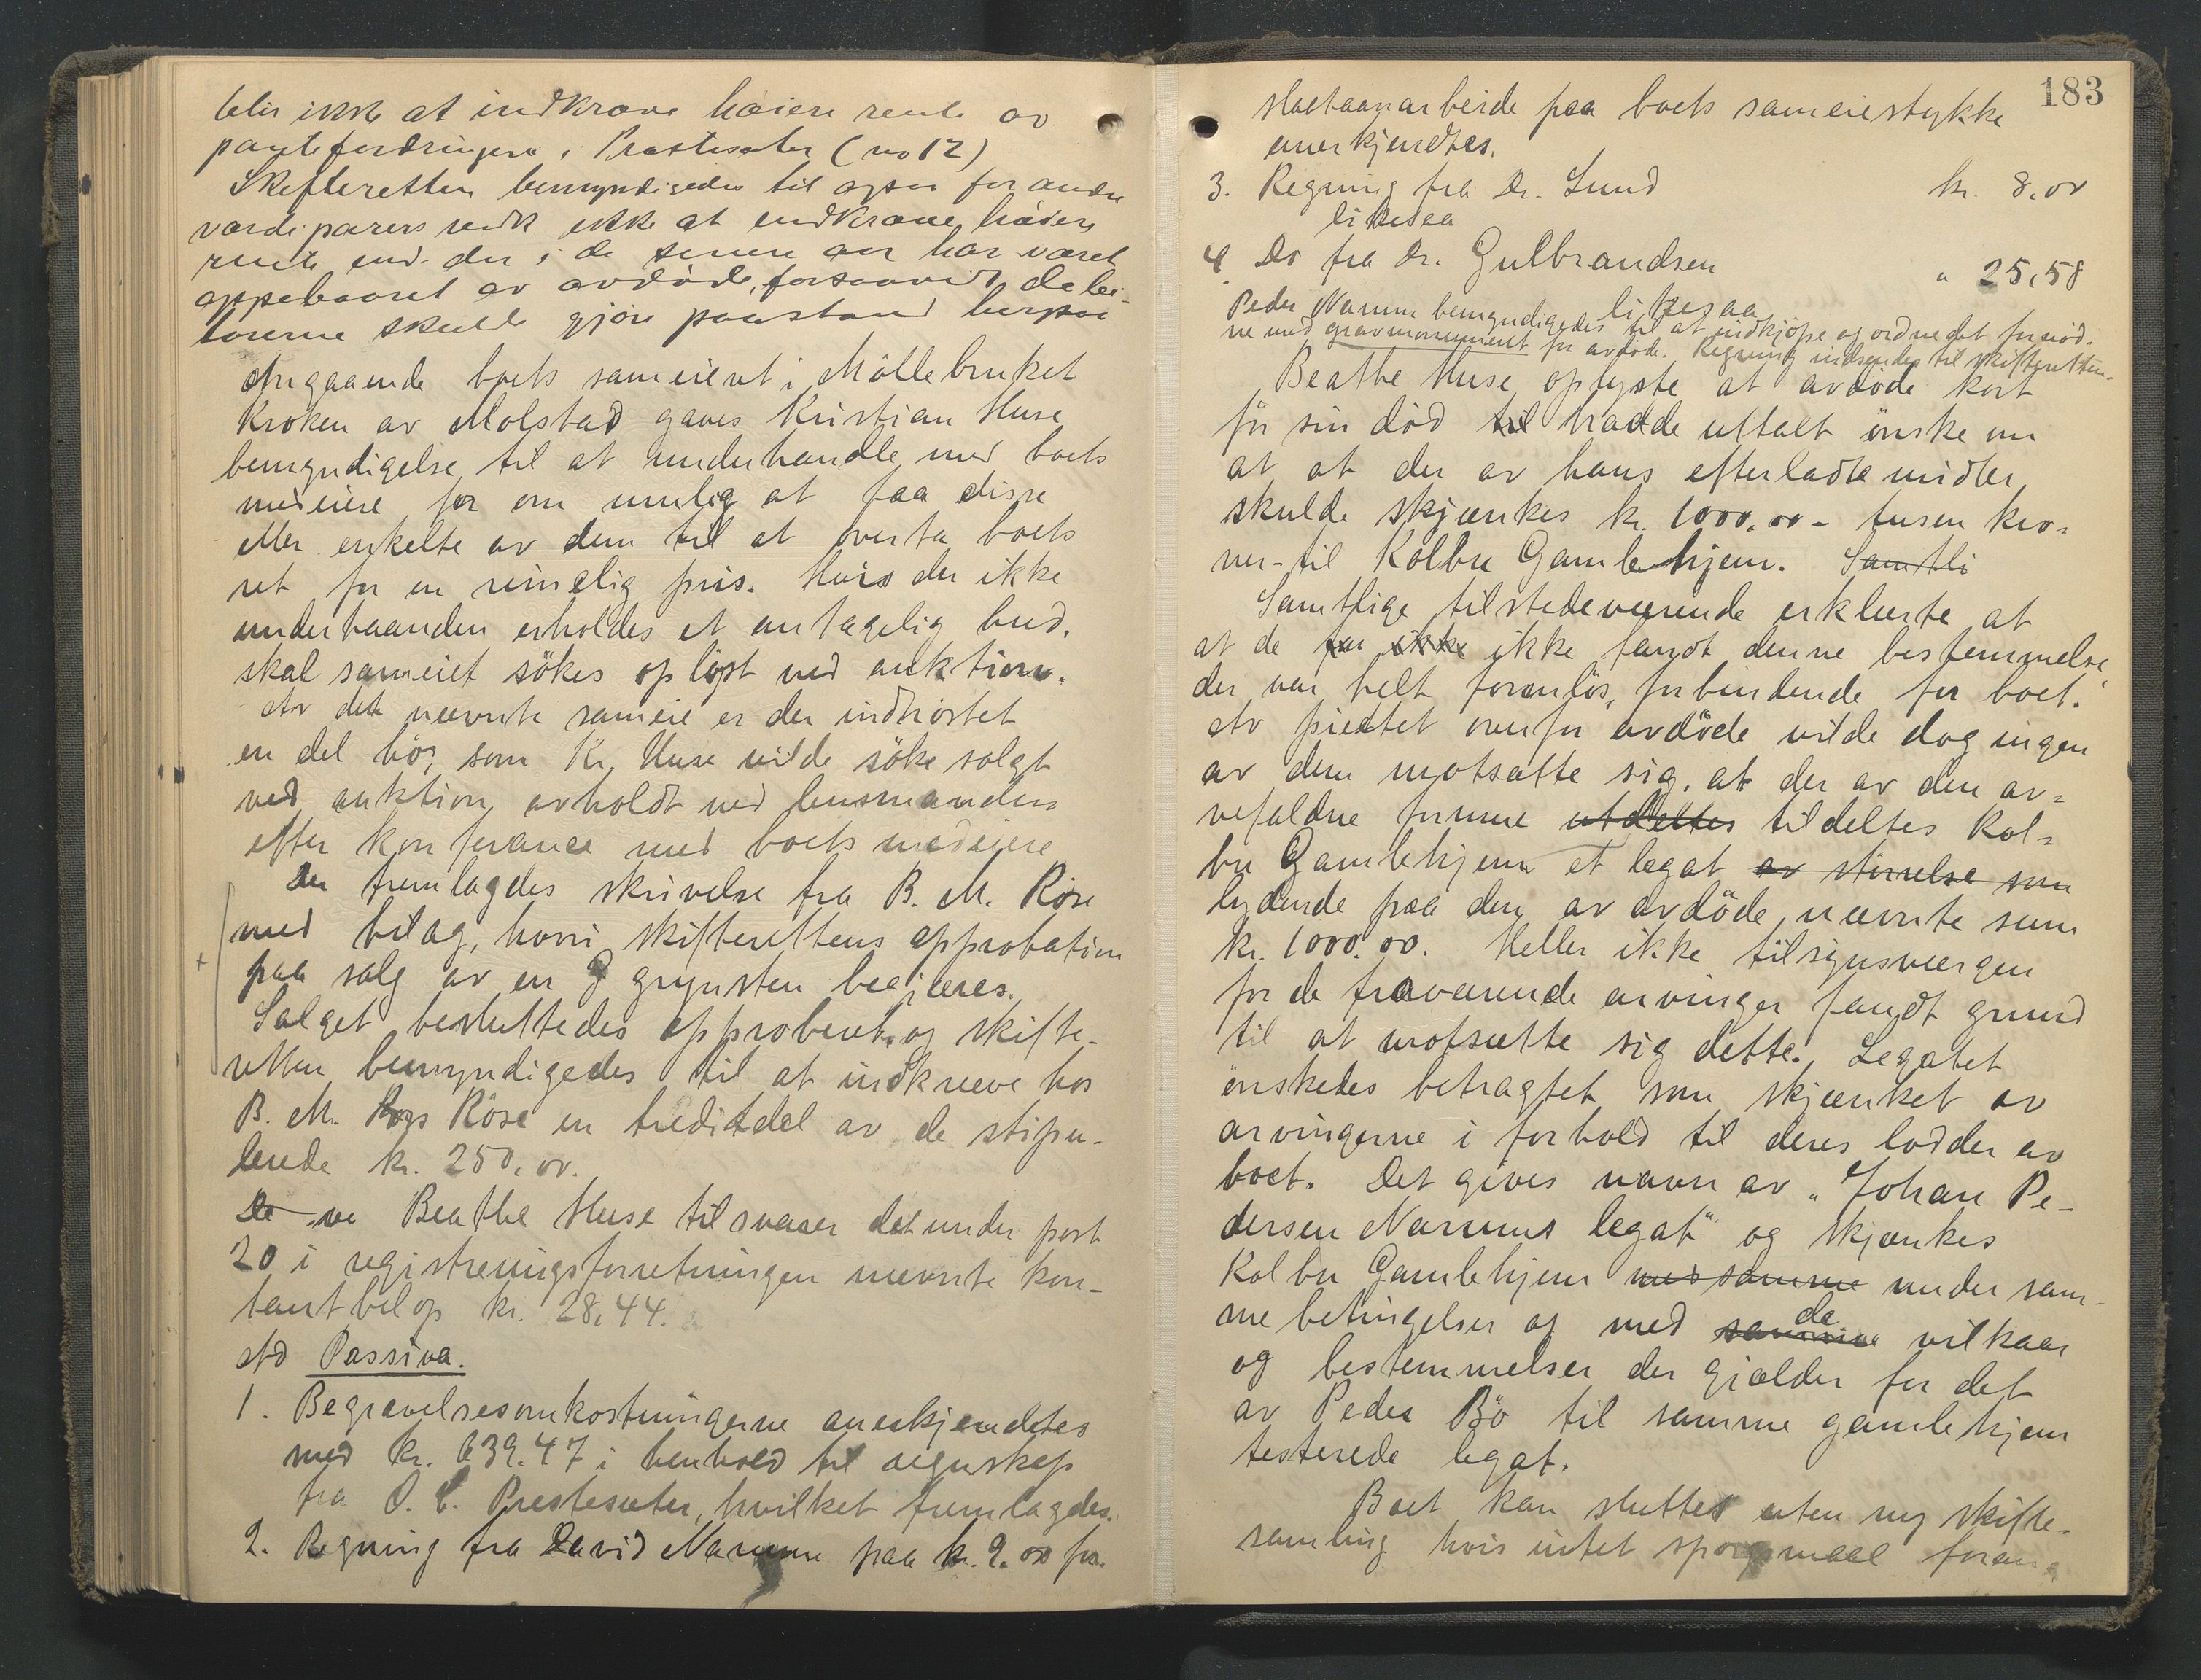 blir ikke at indkræve høiere rente av
pantefordringen i Prestesæter (no 12)
Skifteretten bemyndigedes til ogsaa for andre
værdipapirers vedk ikke at indkræve høiere
rente end der i de senere aar har været
oppebaaret av avdøde, forsaavidt debi-
torerne skulde gjøre paastand herpaa
Angaaende boets sameieret i Møllebruket
Kroken av Molstad gaves Kristian Huse
bemyndigelse til at underhandle med boets
medeiere for om mulig at faa disse
eller enkelte av dem til at overta boets
ret for en rimelig pris. Hvis der ikke
underhaanden erholdes et antagelig bud,
skal sameiet søkes opløst ved auktion.
Av det nævnte sameie er der indhøstet
en del høi, som Kr. Huse vilde søke solgt
ved auktion avholdt ved lensmanden
efter konferance med boets medeiere
Der fremlagdes skrivelse fra B. M. Röse
med bilag, hvori skifterettens approbation
+ paa salg av en grynsten begjæres.
Salget besluttedes approberet og skifte-
retten bemyndigedes til at indkræve hos
B. M. Röse en trediedel av de stipu-
lerede kr. 250,00.
De ve Beathe Huse tilsvarer det under post
20 i registreringsforretningen nævnte kon-
tantbeløp kr. 28,44.
Ad Passiva.
1. Begravelsesomkostningerne anerkjendtes
med kr. 639.47 i henhold til regnskap
fra O. C. Prestesæter, hvilket fremlagdes.
2. Regning fra David Narum paa kr. 9.00 for
183
slaataanarbeide paa boets sameiestykke
anerkjendtes.
3. Regning fra Dr. Lund kr. 8.00
likesaa
4 Do fra Dr. Gulbrandsen " 25,58
likesaa
Peder Narum bemyndigedes til at indkjøpe og ordne det fornød-
ne med gravmonument for avdøde. Regning indsendes til skifteretten.
Beathe Huse oplyste at avdøde kort
før sin død til hadde uttalt ønske om
at at der av hans efterladte midler
skulde skjænkes kr. 1000.00 - tusen kro-
ner - til Kolbu Gamlehjem. Samtli
Samtlige tilstedeværende erklærte at
at de fan ikke ikke fandt denne bestemmelse,
der var helt formløs, forbindende for boet.
Av pietet overfor avdøde vilde dog ingen
av dem motsætte sig, at der av den ar-
vefaldne formue utdeltes tildeltes Kol-
bu Gamlehjem et legat av størrelse som
lydende paa den av avdøde nævnte sum
kr. 1000.00. Heller ikke tilsynsværgen
for de fraværende arvinger fandt grund
til at motsætte sig dette. Legatet
ønskedes betragtet som skjænket av
arvingerne i forhold til deres lodder av
boet. Det gives navn av "Johan Pe-
dersen Narums legat" og skjænkes
Kolbu Gamlehjem med samme under sam-
me betingelser og med samme de vilkaar
og bestemmelser der gjælder for det
av Peder Bö til samme gamlehjem
testerede legat.
Boet kan sluttes uten ny skifte-
samling hvis intet spørgsmaal foran-